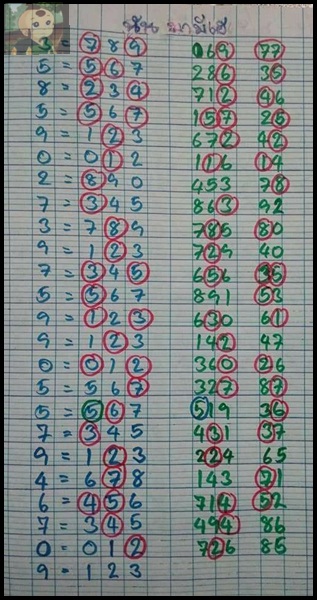 3 = 789 069 77
5 = 567 286 35
8 = 234 712 46
5 = 567 157 25
9 = 123 672 42
0 = 012 116 14
2 = 890 453 78
7 = 345 863 92
3 = 789 785 80
9 = 123 729 40
7 = 345 656 35
5 = 567 891 53
9 = 123 630 61
9 = 123 142 47
0 = 012 360 26
5 = 567 327 87
5 = 567 519 36
7 = 345 431 37
9 = 123 224 65
4 = 678 143 71
6 = 456 714 52
7 = 345 494 86
0 = 012 726 85
9 = 123